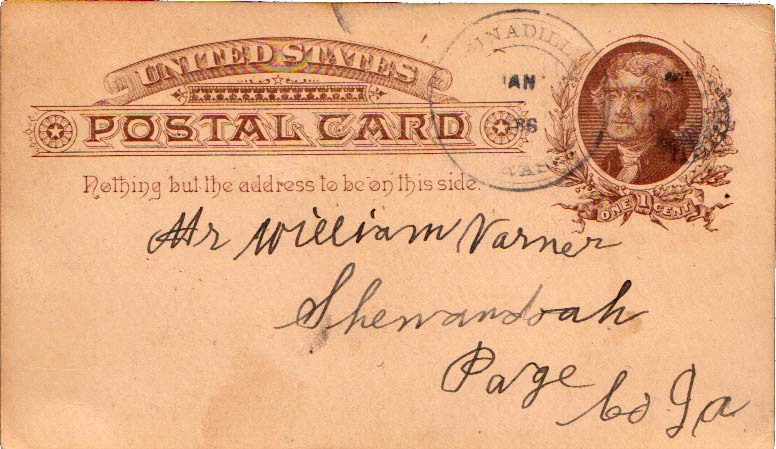 UNITED STATES
POSTAL CARD
Nothing but the address to be on this side.
INADILL
AN
86
KAN
ONE 1 CENT
Mr William Varner
Shenandoah
Page
Co Ia